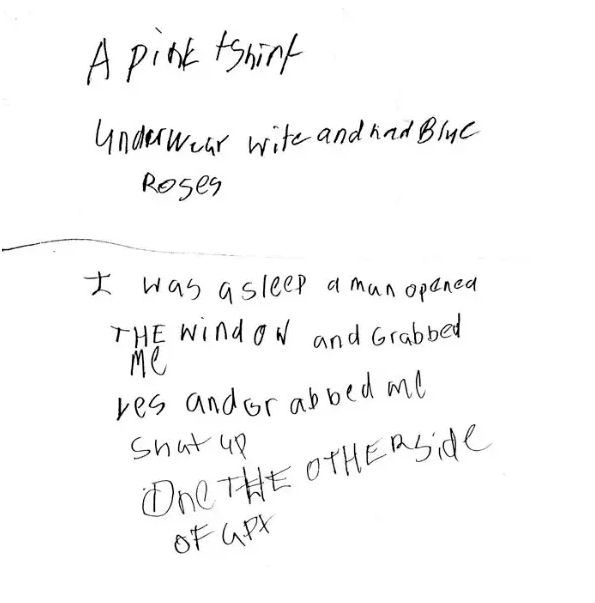 A pink tshirt
Underwear wite and had Blue
Roses
I was asleep a man opened
THE window and Grabbed
Me
yes and Gr abbed me
Shut up
One THE OTHER side
OF apx